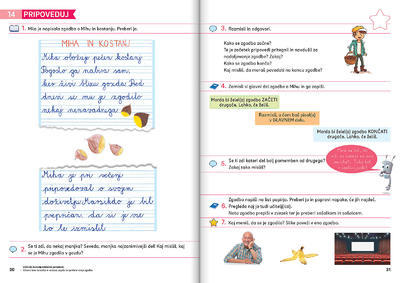 14 PRIPOVEDUJ
1. Mia je napisala zgodbo o Mihu in kostanju. Preberi jo.
MIHA IN KOSTANJ
Miha obožuje pečen kostanj.
Pogosto ga nabira sam,
ker živi blizu gozda. Pred
dnevi se mu je zgodilo
nekaj nenavadnega.
Miha je pri večerji
pripovedoval o svojem
doživetju. Marsikdo je bil
prepričan, da si je vse
to le izmislil.
2. Se ti zdi, da nekaj manjka? Seveda, manjka najzanimivejši del! Kaj misliš, kaj
je Miha zgodilo v gozdu?
30
3. Razmisli in odgovori.
Kako se zgodba začne?
Te je začetek pripovedi pritegnil in navdušil za
nadaljevanje zgodbe? Zakaj?
Kako se zgodba konča?
Kaj misliš, da moraš povedati na koncu zgodbe?
4. Zamisli si glavni del zgodbe o Mihu in ga napiši.
Morda bi želel(a) zgodbo ZAČETI
drugače. Lahko, če želiš.
Razmisli, o čem boš pisal(a)
v GLAVNEM delu.
Morda bi želel(a) zgodbo KONČATI
drugače. Lahko, če želiš.
5. Se ti zdi kateri del bolj pomemben od drugega?
Zakaj tako misliš?
Zgodbo napiši na list papirja. Preberi jo in popravi napake, če jih najdeš.
6. Pregleda naj jo tudi učitelj(ica).
Nato zgodbo prepiši v zvezek ter jo preberi sošolkam in sošolcem.
7. Kaj meniš, da se je zgodilo? Slike poveži v eno zgodbo.
31